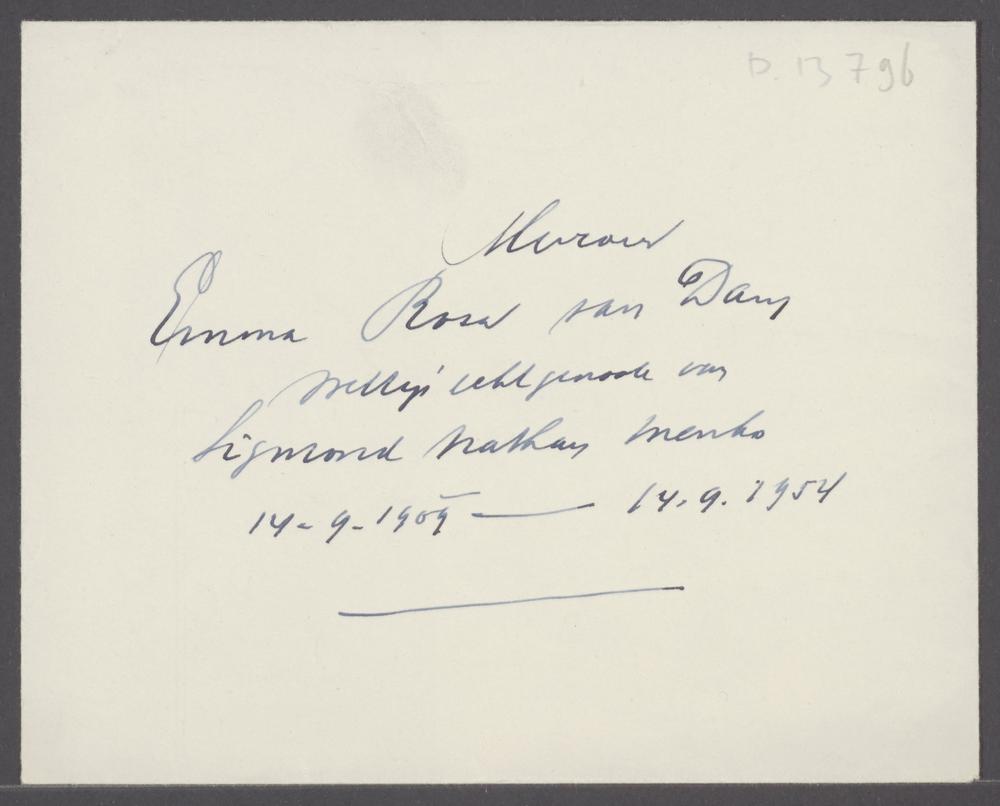 D. 13796
Mevrouw
Emma Rosa van Dam
wettige echtgenoote van
Sigmond Nathan Menko
14-9-1909 — 14.9.1954